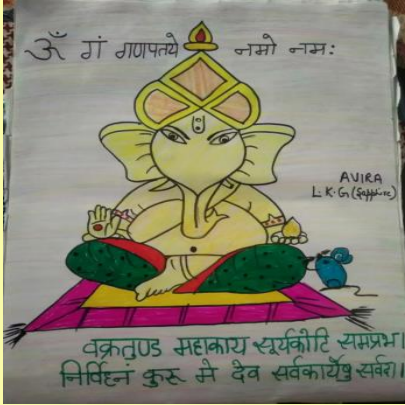 ॐ गं गणपतये नमो नमः
AVIRA
L.K.G (Sapphire)
वक्रतुण्ड महाकाय सूर्यकोटि समप्रभ।
निर्विघ्नं कुरु मे देव सर्वकार्येषु सर्वदा।